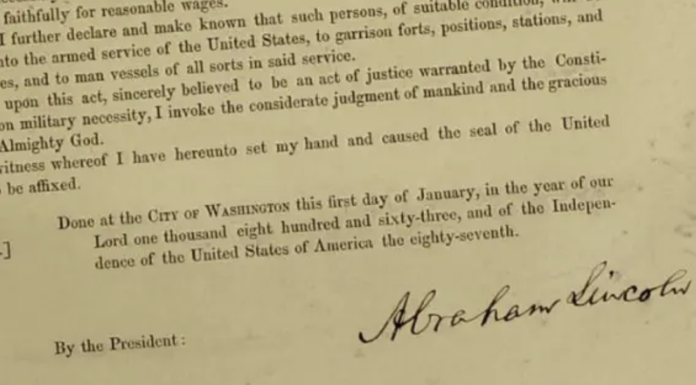 faithfully for reasonable wages.
I further declare and make known that such persons, of suitable condition, will
into the armed service of the United States, to garrison forts, positions, stations, and
es, and to man vessels of all sorts in said service.
upon this act, sincerely believed to be an act of justice warranted by the Consti-
on military necessity, I invoke the considerate judgment of mankind and the gracious
Almighty God.
witness whereof I have hereunto set my hand and caused the seal of the United
be affixed.
Done at the CITY OF WASHINGTON this first day of January, in the year of our
.] Lord one thousand eight hundred and sixty-three, and of the Indepen-
dence of the United States of America the eighty-seventh.
Abraham Lincoln
By the President: